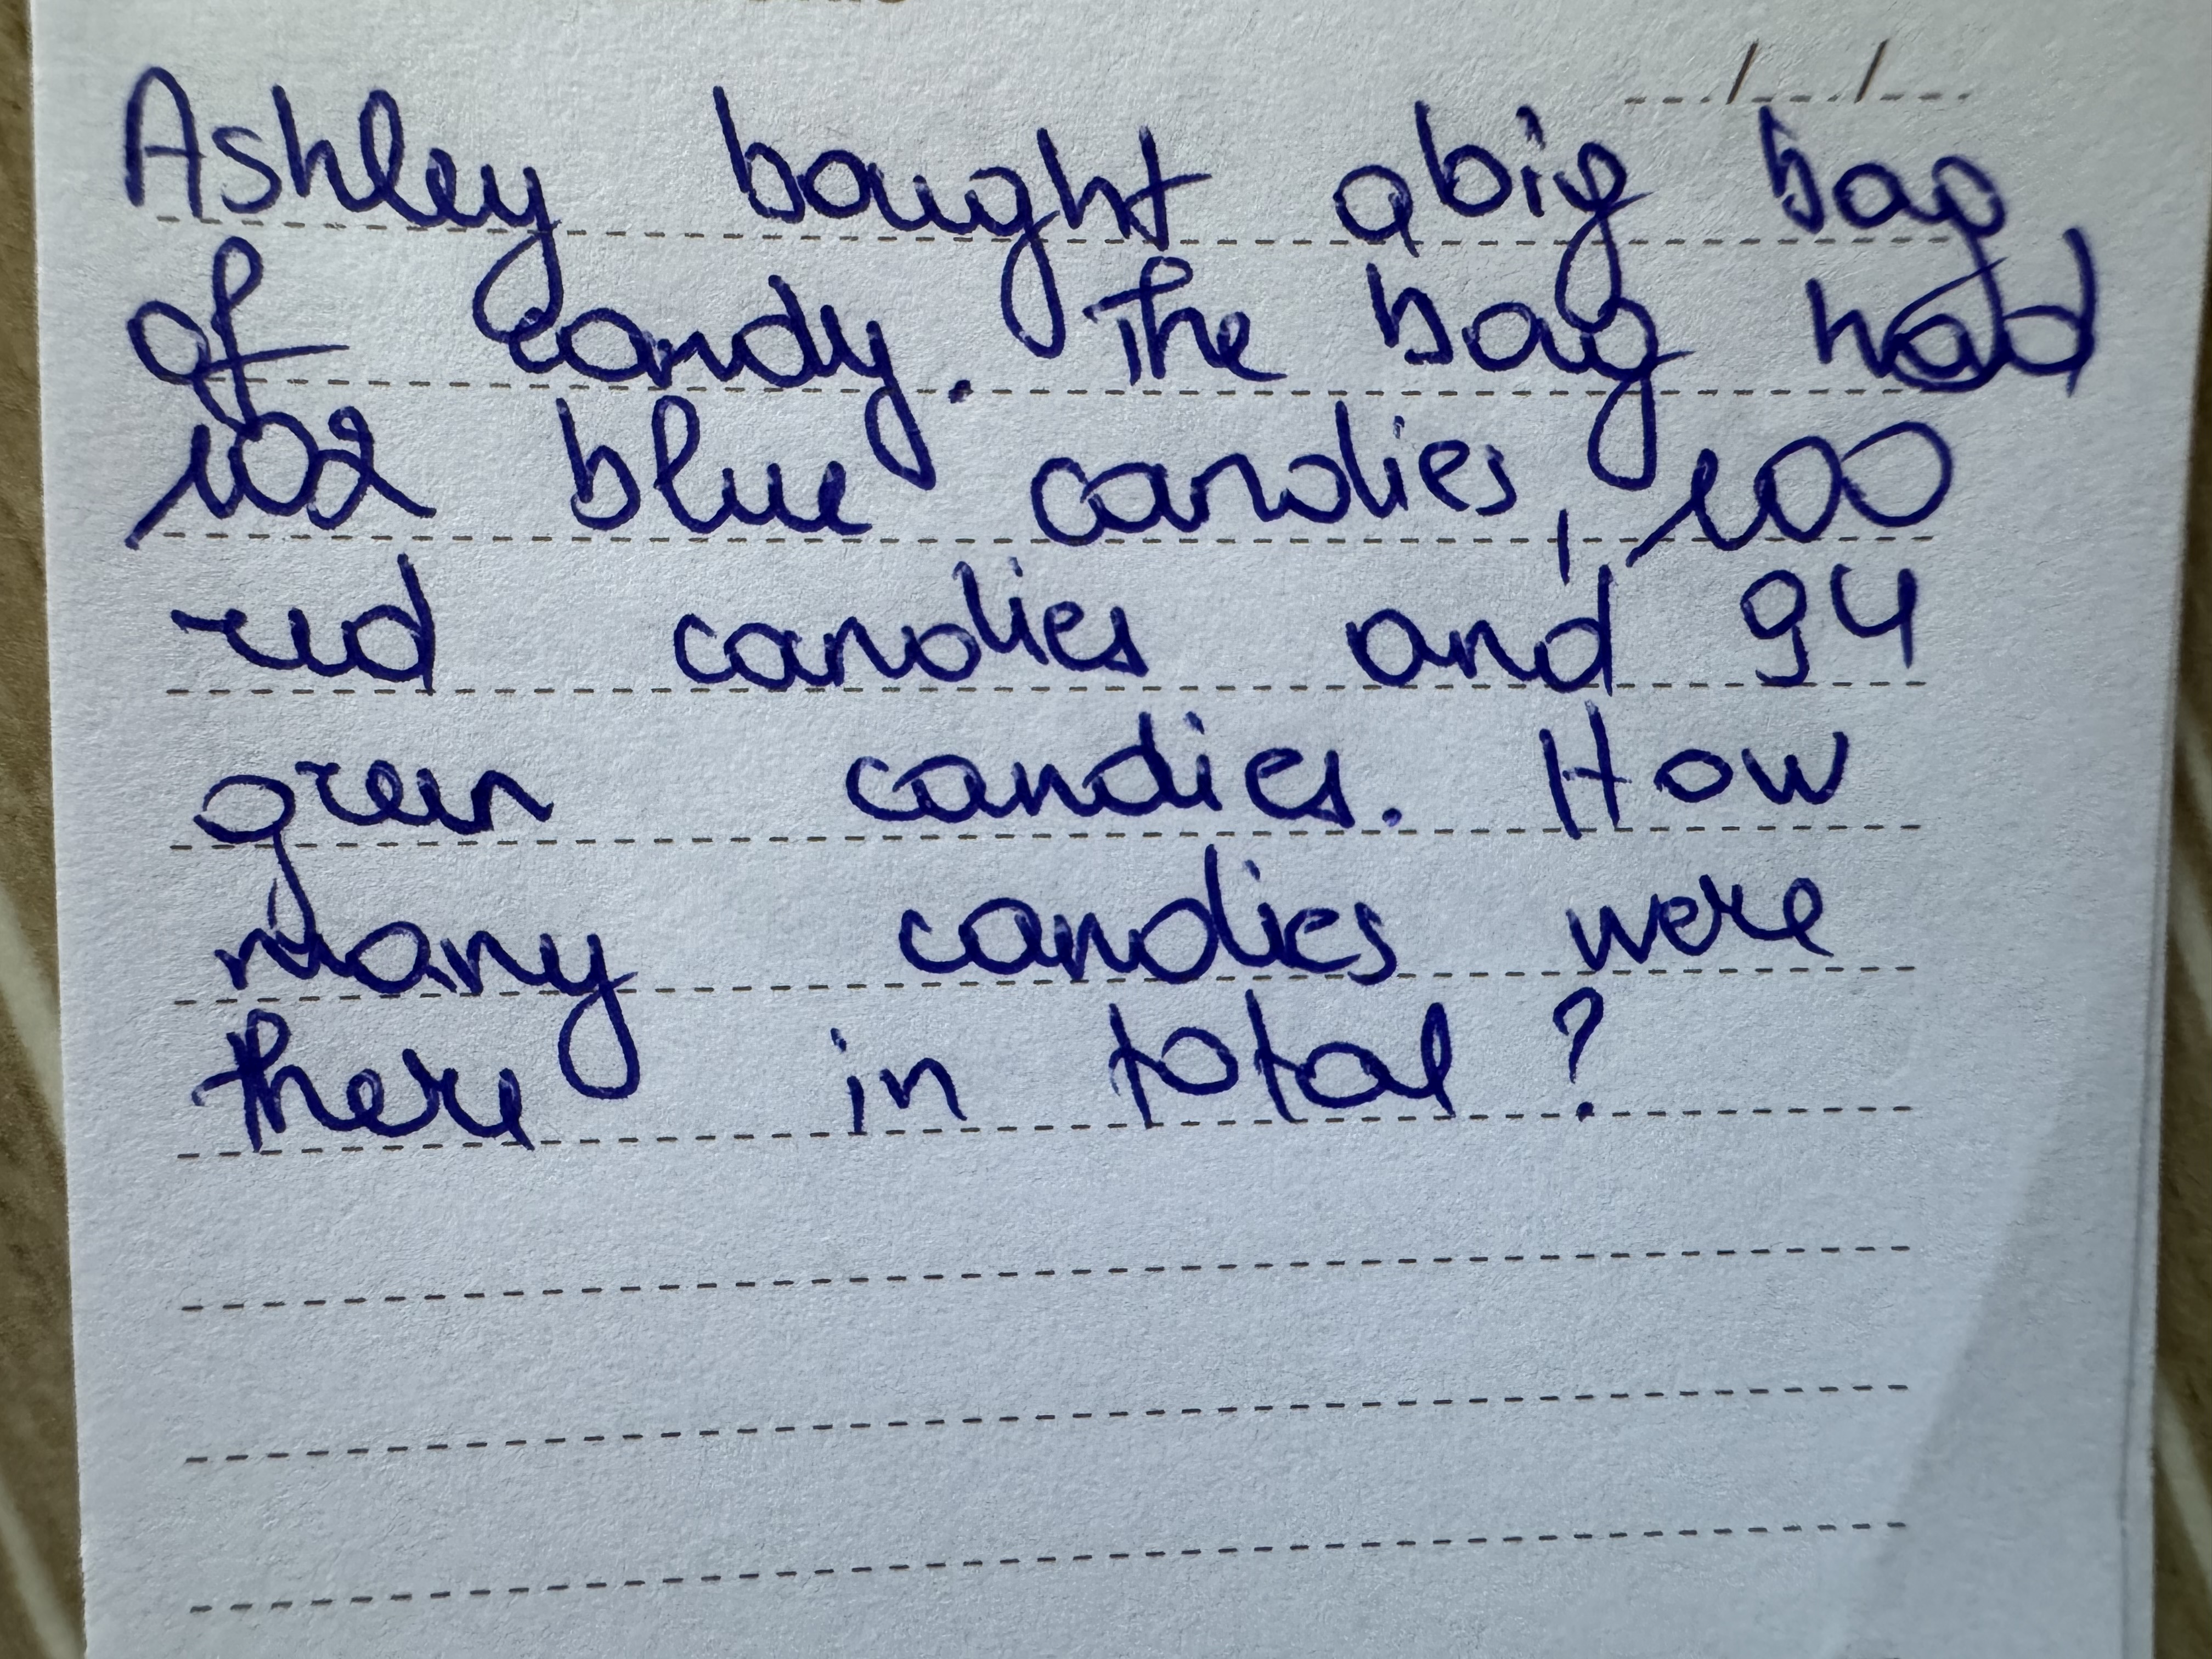 Ashley bought a big bag
of candy. The bag had
102 blue candies, 100
red candies and 94
green candies. How
many candies were
there in total?